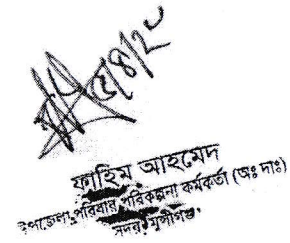 ফাহিম আহমেদ
উপজেলা পরিবার পরিকল্পনা কর্মকর্তা (অঃ দাঃ)
সদর, মুন্সীগঞ্জ